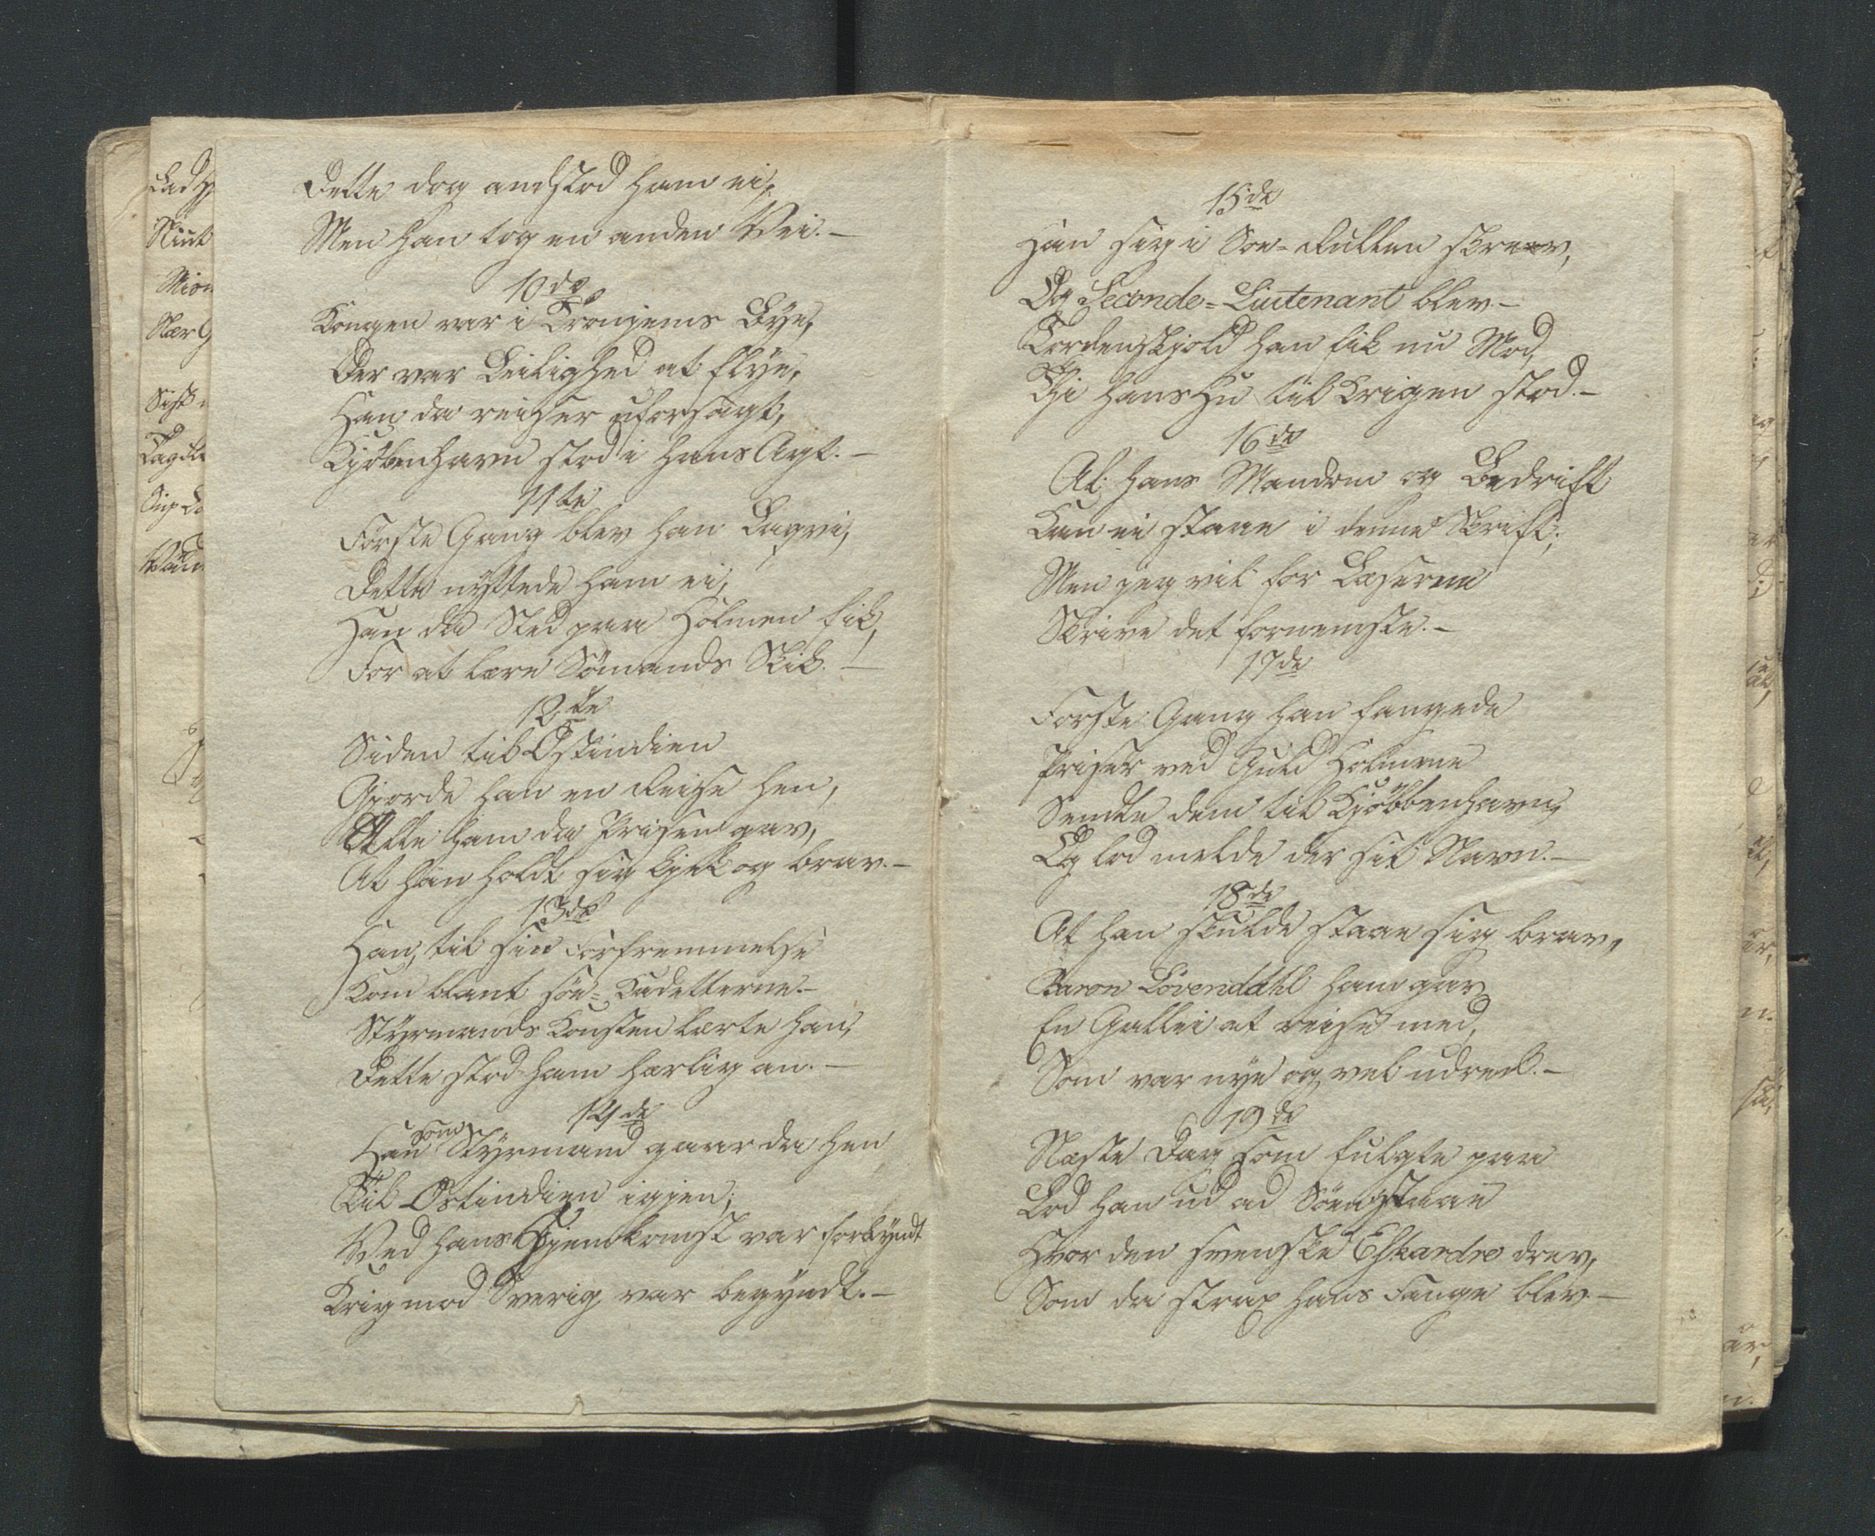 Dette dog anstod ham ei,
Men han tog en anden Vei. –
10de
Kongen var i Tronjems Bye,
Der var Leilighed at flye,
Han da reiser uforsagt,
Kjøbenhavn stod i hans Agt. –
11te
Første Gang blev han Laqvei,
Dette nyttede ham ei,
Han da Sted paa Holmen fik,
For at lære Sømands Skik. –
12te
Siden til Ostindien
Gjorde han en Reise hen,
Alle ham da Prisen gav,
At han holdt sig kjek og brav. –
13de
Han, til sin Forfremmelse
Kom blant Søe-Kadetterne. –
Styrmands Konsten lærte han,
Dette stod ham herlig an. –
14de
Han som Styrmand gaar da hen
Til Ostindien igjen;
Ved hans Hjemkomst var forkyndt
Krig mod Sverig var begyndt. –
15de
Han sig i Søe-Rullen skrev,
Og Seconde-Liutenant blev –
Tordenskjold han fik nu Mod,
Thi hans Hu til Krigen stod. –
16de
Al hans Mandom og Bedrift
Kan ei staae i denne Skrift;
Men jeg vil for Læserne
Skrive det fornemste. –
17de
Første Gang han fangede
Priser ved Guld Holmene
Sendte dem til Kjøbbenhavn,
Og lod melde der sit Navn. –
18de
At han skulde staae sig brav,
Baron Løvendahl ham gav
En Gallei at reise med,
Som var nye og vel udred. –
19de
Næste Dag som fulgte paa
Lod han ud ad Søen staae
Hvor den svenske Eskardre drev,
Som da strax hans Fange blev –